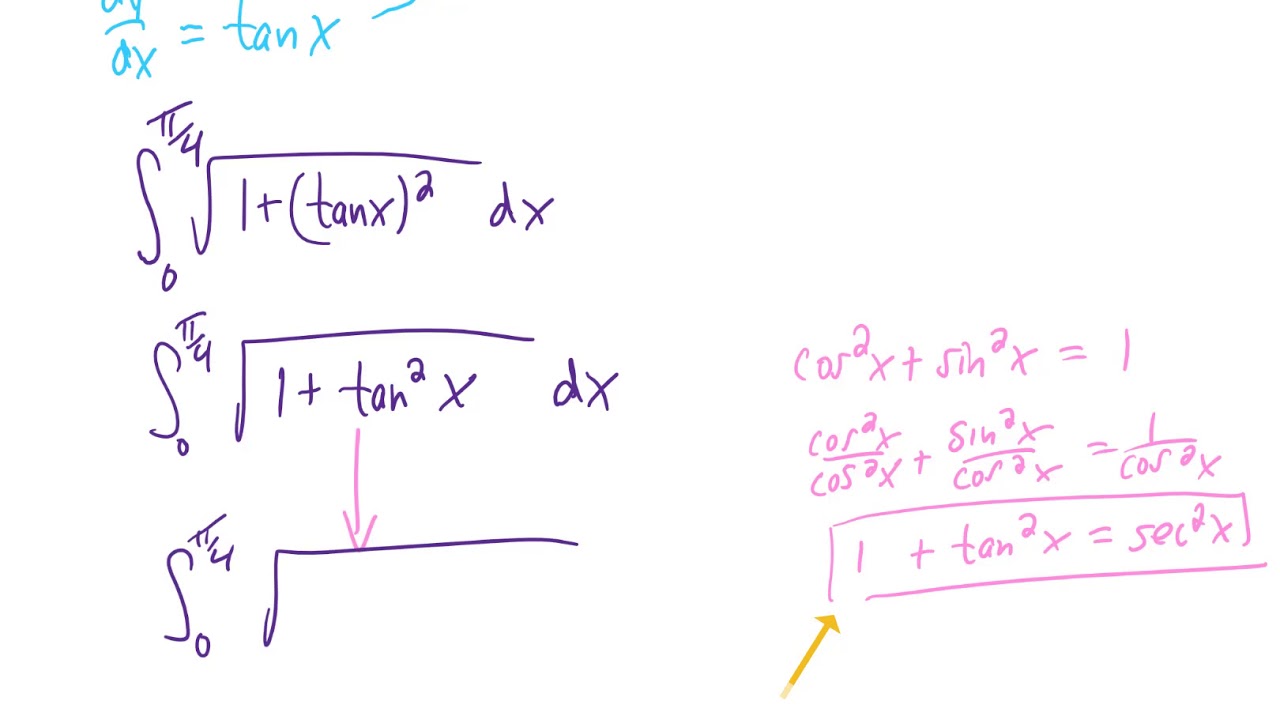 dy/dx = tan x
∫₀^{π/4} √(1+(tanx)²) dx
∫₀^{π/4} √(1 + tan² x) dx
∫₀^{π/4} √
cos²x + sin²x = 1
cos²x/cos²x + sin²x/cos²x = 1/cos²x
1 + tan²x = sec²x